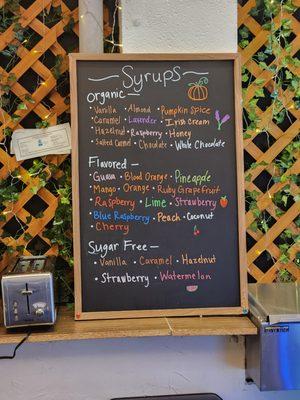 Syrups
Organic —
• Vanilla • Almond • Pumpkin Spice
• Caramel • Lavender • Irish Cream
• Hazelnut • Raspberry • Honey
• Salted Caramel • Chocolate • White Chocolate
Flavored —
• Guava • Blood Orange • Pineapple
• Mango • Orange • Ruby Grapefruit
• Raspberry • Lime • Strawberry
• Blue Raspberry • Peach • Coconut
• Cherry
Sugar Free —
• Vanilla • Caramel • Hazelnut
• Strawberry • Watermelon